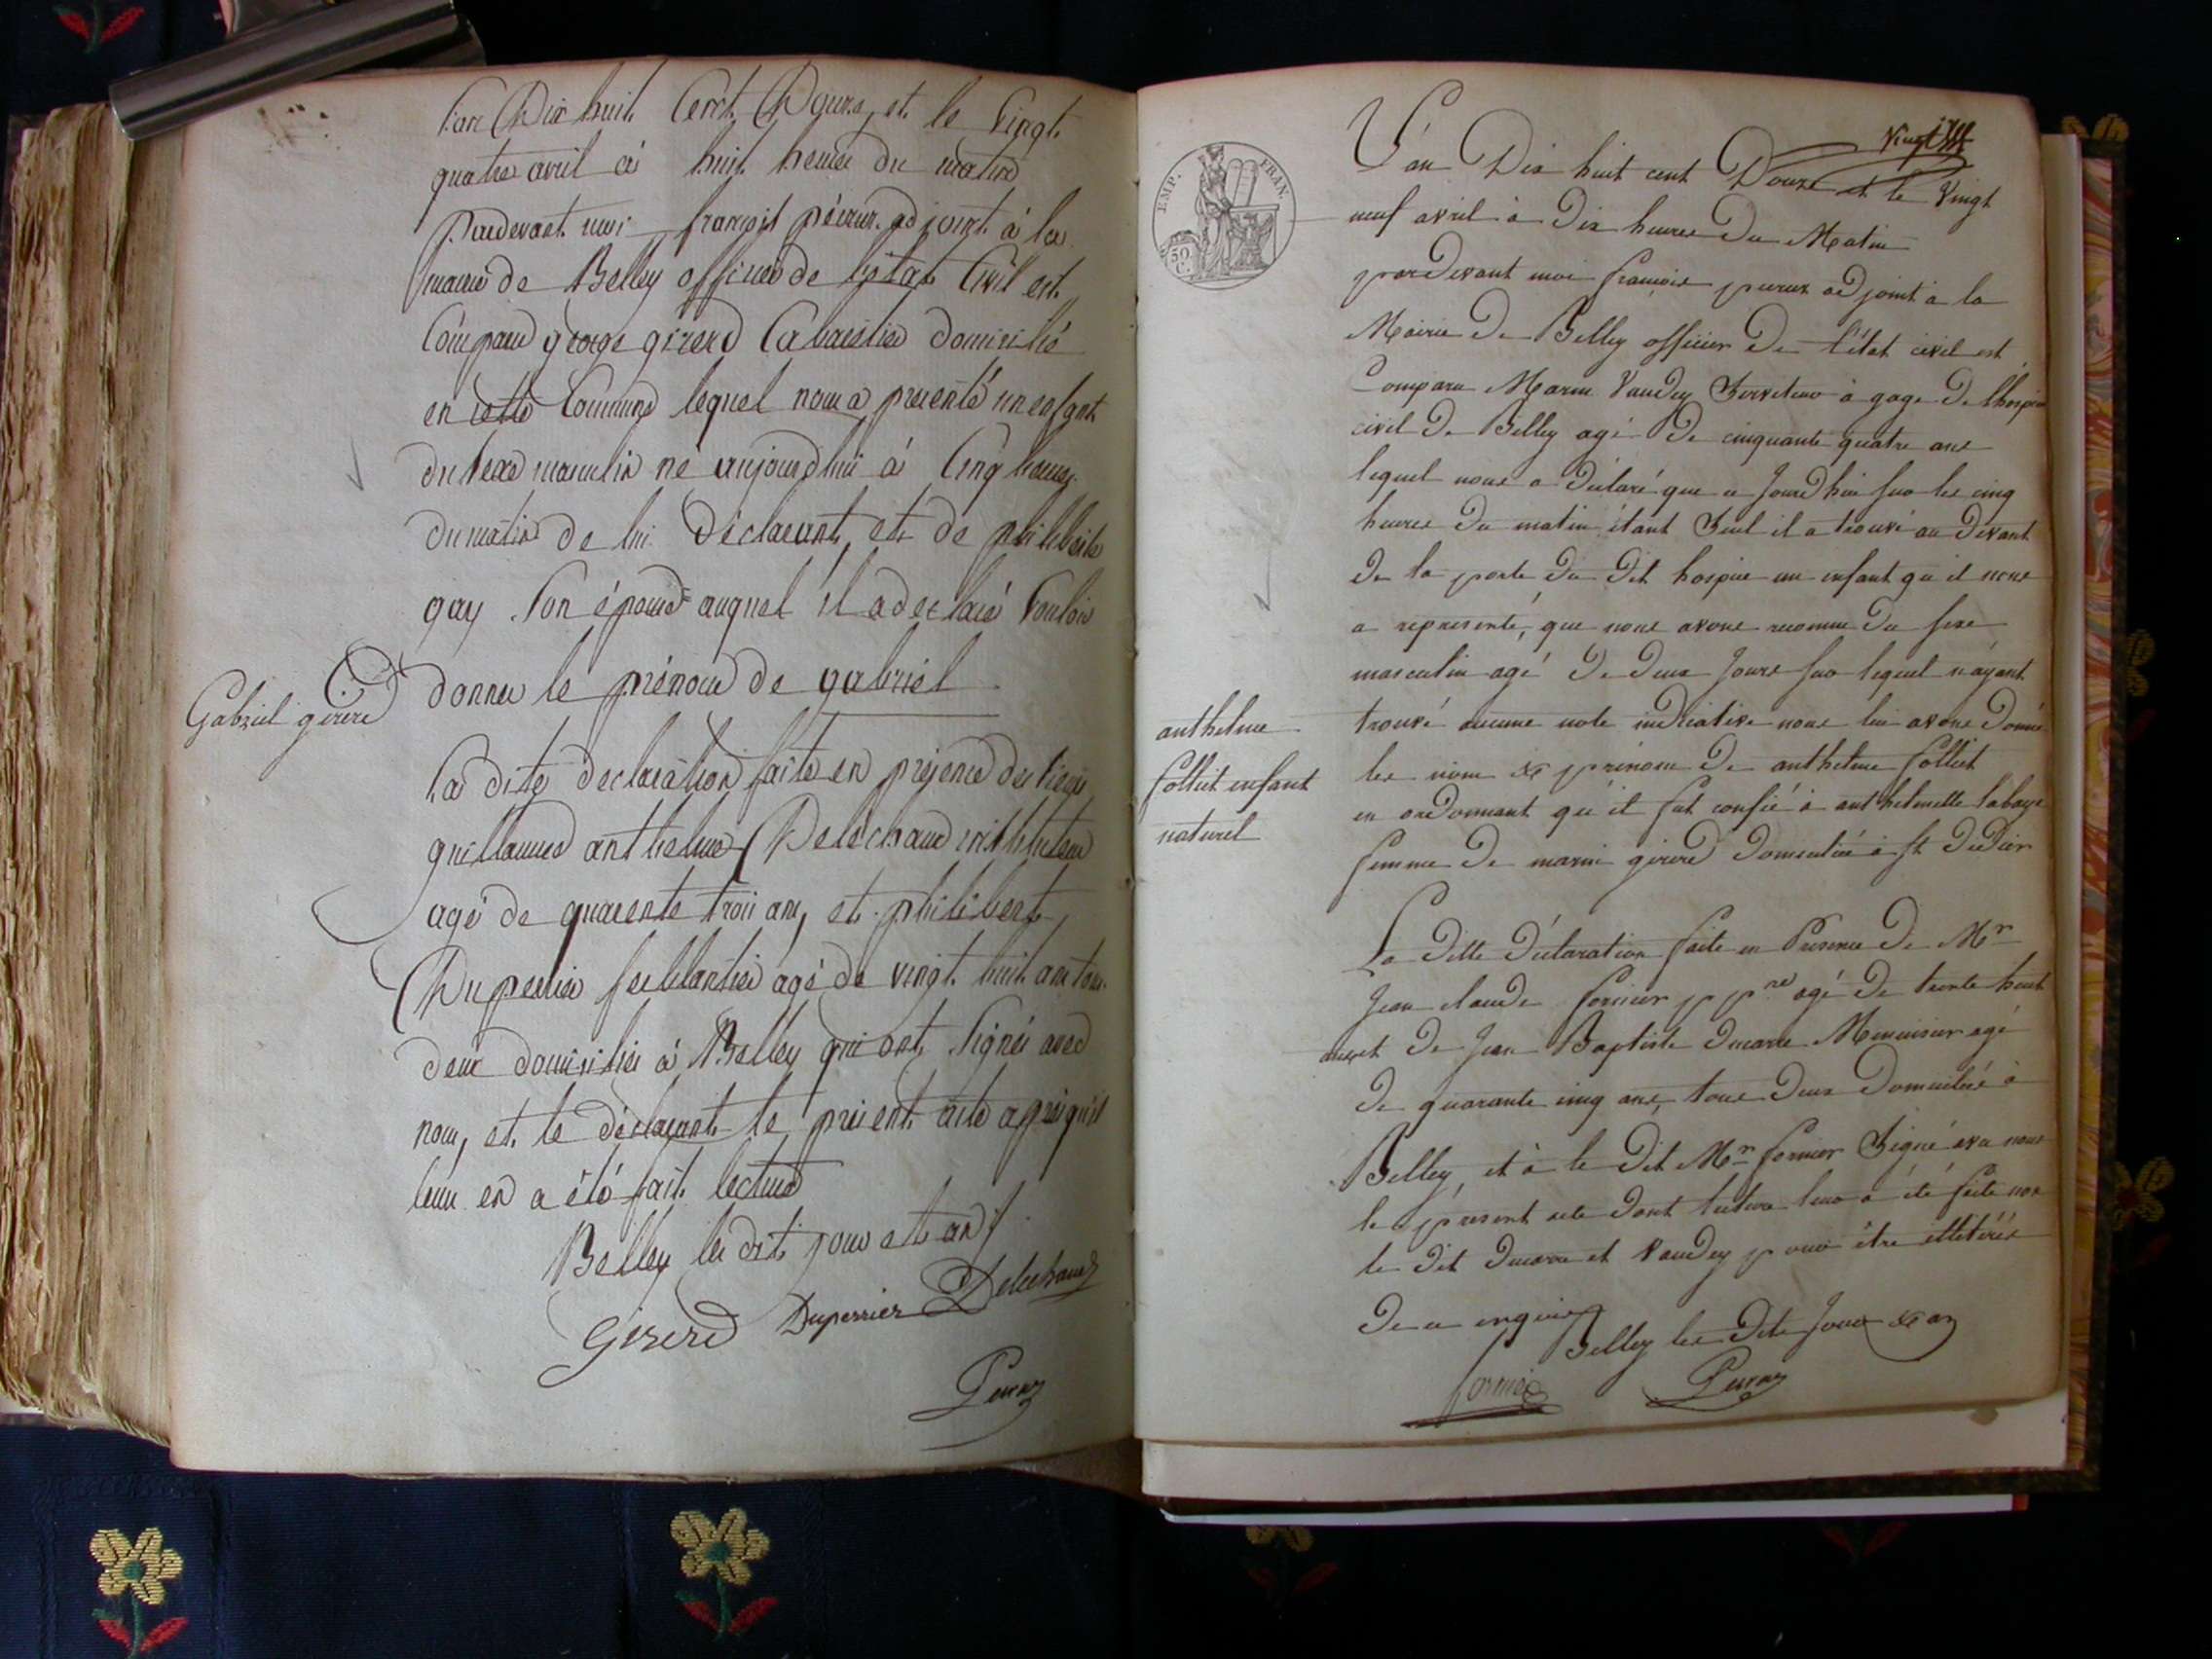 l'an Dix huit Cent Douze, et le Vingt
quatre avril à huit heures du matin
Pardevant moi françois péëuruz adjoint à la
mairie de Belley officier de l'état Civil est
Comparu george girerd Cabaretier domicilié
en cette Commune lequel nous a presenté un enfant
du sexe masculin né aujourd'hui à Cinq heures
du matin de lui Déclarant, et de philiberte
gay son épouse auquel il a declaré Vouloir
donner le prénom de gabriel
Gabriel girerd
la dite declaration faite en présence des sieurs
guillaume anthelme Delechaud instituteur
agé de quarente trois ans, et philibert
Duperrier ferblantier agé de vingt huit ans tous
deux domiciliés à Belley qui ont signés avec
nous, et le déclarant le présent acte après qu'il
leur en a été fait lecture
Belley les dits jour et an
Girerd Duperrier Delechaud
Peuruz
Vingt
L'an Dix huit cent Douze et le Vingt
neuf avril à Dix heures Du Matin
pardevant moi françois peuruz adjoint à la
Mairie De Belley officier De l'état civil est
Comparu Marin Vaudey Serviteur à gage De l'hospice
civil De Belley agé De cinquante quatre ans
lequel nous a Déclaré que ce Jourd'hui sur les cinq
heures Du matin étant Seul il a trouvé au Devant
De la porte Du Dit hospice un enfant qu'il nous
a representé, que nous avons reconnu Du sexe
masculin agé De Deux Jours sur lequel n'ayant
trouvé aucune note indicative nous lui avons Donné
les nom & prénom De anthelme follict
en ordonnant qu'il fut confié à anthelmette labaye
femme De marin girerd Domicilié à St Didier
anthelme
follict enfant
naturel
La Ditte Déclaration faite en Presence De Mr
Jean claude fornier ppre agé De trente huit
ans et De Jean Baptiste Ducarre Menuisier agé
De quarante cinq ans, tous Deux Domiciliés à
Belley, et à le Dit Mr fornier Signé avec nous
le présent acte Dont lecture leur à été faite non
le Dit Ducarre et Vaudey pour être illetérés
De ce enquis
Belley les Dits Jour & an
fornier Peuruz
EMP. FRAN.
50 C.